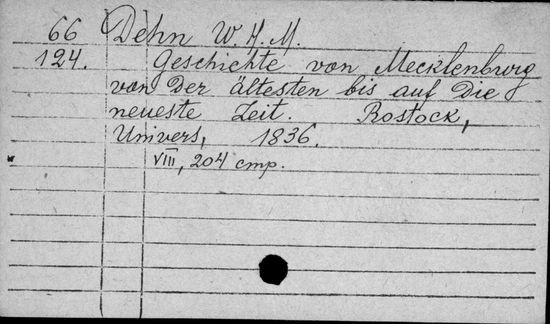 66 Dehn W. H. M.
124. Geschichte von Mecklenburg
von Der ältesten bis auf Die
neueste Zeit. Rostock,
Univers, 1836.
VIII, 204 стр.